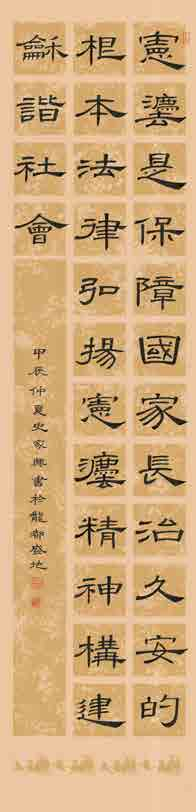 憲灋是保障國家長治久安的
根本法律弘揚憲灋精神構建
龢諧社會
甲辰仲夏史家興書於龍都盛地